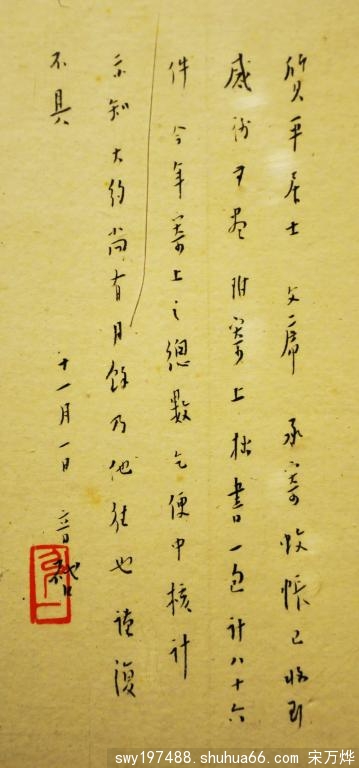 质平居士 文席 承寄蚊帐已收到
感谢无尽 附寄上拙书一包计八十六
件 今年寄上之總數乞便中核計
示知大约尚有月餘乃他往也謹復
不具
十一月一日 音啟
swy197488.shuhua66.com 宋万烨